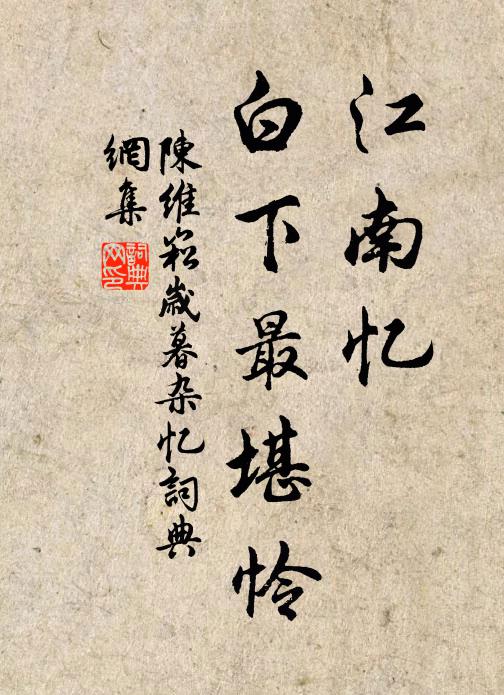 江南忆
白下最堪怜
陳維崧歲暮杂忆詞典
網集
詞典
网印